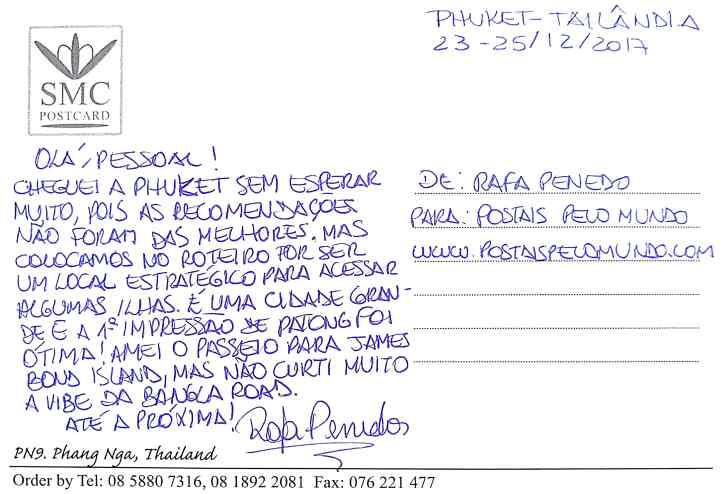 PHUKET-TAILÂNDIA
23-25/12/2017
SMC
POSTCARD
OLÁ, PESSOAL!
CHEGUEI A PHUKET SEM ESPERAR
MUITO, POIS AS RECOMENDAÇÕES
NÃO FORAM DAS MELHORES. MAS
COLOCAMOS NO ROTEIRO POR SER
UM LOCAL ESTRATÉGICO PARA ACESSAR
ALGUMAS ILHAS. É UMA CIDADE GRAN-
DE E A 1ª IMPRESSÃO DE PATONG FOI
ÓTIMA! AMEI O PASSEIO PARA JAMES
BOND ISLAND, MAS NÃO CURTI MUITO
A VIBE DA BANGLA ROAD.
ATÉ A PRÓXIMA!
Rafa Penedos
DE: RAFA PENEDO
PARA: POSTAIS PELO MUNDO
WWW.POSTAISPELOMUNDO.COM
PN9. Phang Nga, Thailand
Order by Tel: 08 5880 7316, 08 1892 2081 Fax: 076 221 477